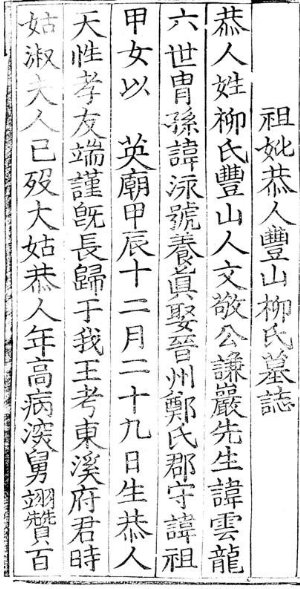 祖妣恭人豐山柳氏墓誌
恭人姓柳氏豐山人文敬公謙嚴先生諱雲龍
六世胄孫諱泳號養眞娶晉州鄭氏郡守諱祖
甲女以 英廟甲辰十二月二十九日生恭人
天性孝友端謹旣長歸于我王考東溪府君時
姑淑夫人已歿大姑恭人年高病深舅翊贊百